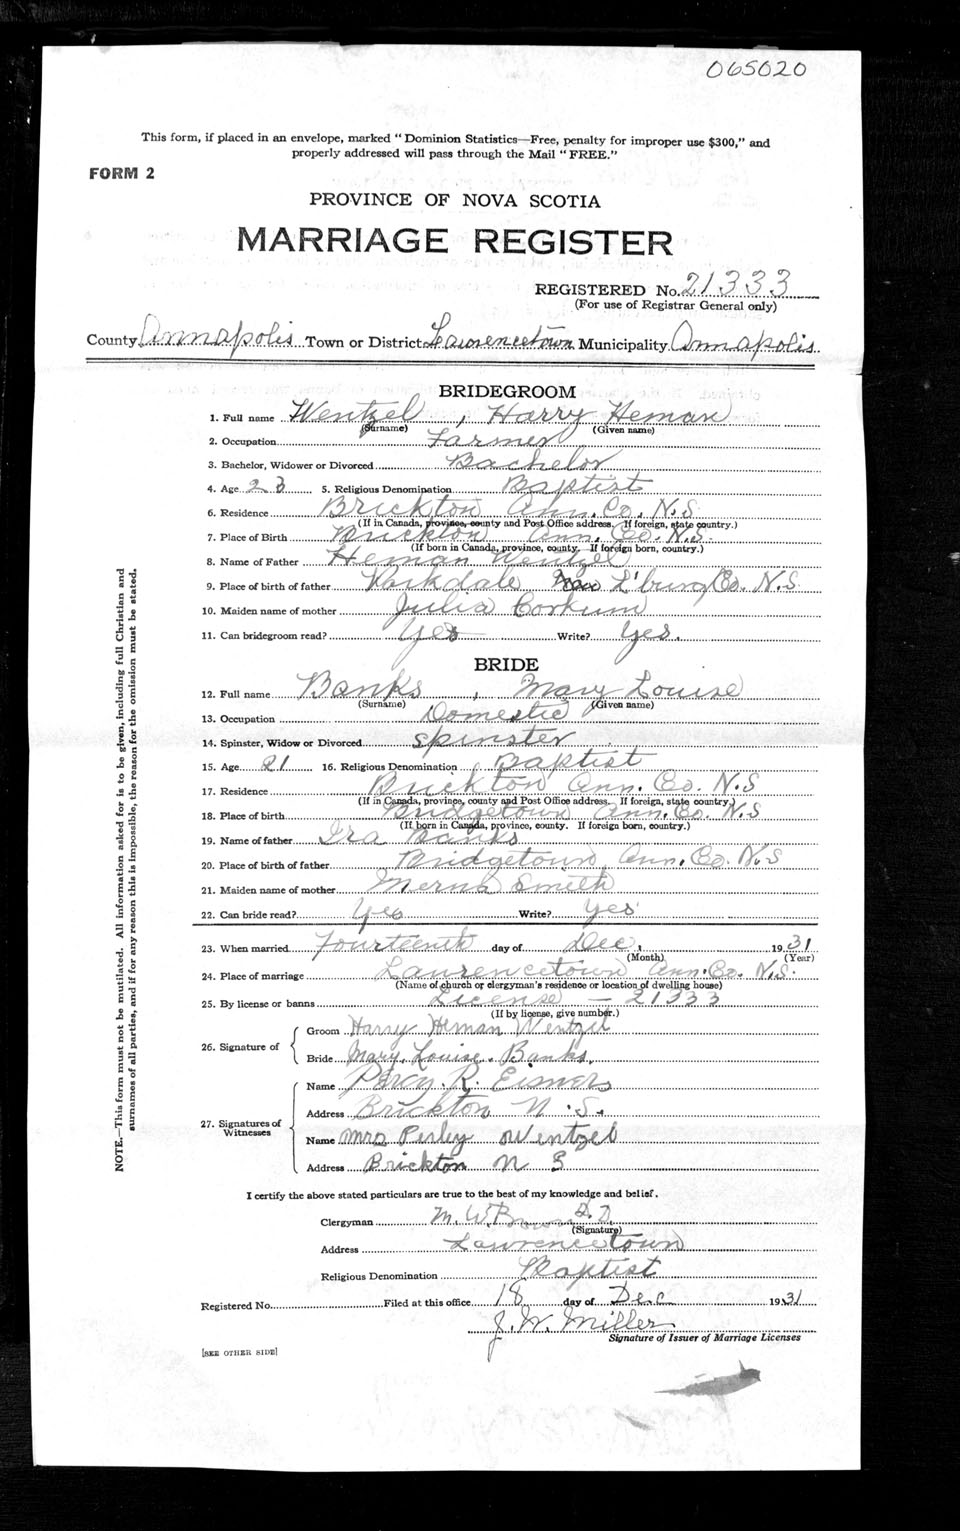 065020
This form, if placed in an envelope, marked "Dominion Statistics—Free, penalty for improper use $300," and
properly addressed will pass through the Mail "FREE."
FORM 2
PROVINCE OF NOVA SCOTIA
MARRIAGE REGISTER
REGISTERED No. 21333
(For use of Registrar General only)
County Annapolis Town or District Lawrencetown Municipality Annapolis
BRIDEGROOM
1. Full name Wentzel, Harry Heman
(Surname) (Given name)
2. Occupation Farmer
3. Bachelor, Widower or Divorced Bachelor
4. Age 23 5. Religious Denomination Baptist
6. Residence Brickton Ann. Co. N.S
(If in Canada, province, county and Post Office address. If foreign, state country.)
7. Place of Birth Brickton Ann. Co. N.S.
(If born in Canada, province, county. If foreign born, country.)
8. Name of Father Heman Wentzel
9. Place of birth of father Parkdale L'burg Co. N.S
10. Maiden name of mother Julia Corkum
11. Can bridegroom read? Yes Write? Yes.
BRIDE
12. Full name Banks, Mary Louise
(Surname) (Given name)
13. Occupation Domestic
14. Spinster, Widow or Divorced Spinster
15. Age 21 16. Religious Denomination Baptist
17. Residence Brickton Ann. Co. N.S
(If in Canada, province, county and Post Office address. If foreign, state country.)
18. Place of birth Bridgetown Ann. Co. N.S
(If born in Canada, province, county. If foreign born, country.)
19. Name of father Ira Banks
20. Place of birth of father Bridgetown, Ann. Co. N.S
21. Maiden name of mother Smith
22. Can bride read? Yes Write? Yes
23. When married Fourteenth day of Dec. 1931
(Month) (Year)
24. Place of marriage Lawrencetown Ann. Co. N.S.
(Name of church or clergyman's residence or location of dwelling house)
25. By license or banns License — 21333
(If by license, give number.)
26. Signature of
Groom Harry Heman Wentzel
Bride Mary Louise Banks.
27. Signatures of Witnesses
Name Percy R. Eisner
Address Brickton N.S.
Name Mrs Perley Wentzel
Address Brickton N S
I certify the above stated particulars are true to the best of my knowledge and belief.
Clergyman M. W. Brown D.D.
(Signature)
Address Lawrencetown
Religious Denomination Baptist
Registered No. Filed at this office 18 day of Dec 1931
J. W. Miller
Signature of Issuer of Marriage Licenses
[SEE OTHER SIDE]
NOTE.—This form must not be mutilated. All information asked for is to be given, including full Christian and
surnames of all parties, and if for any reason this is impossible, the reason for the omission must be stated.